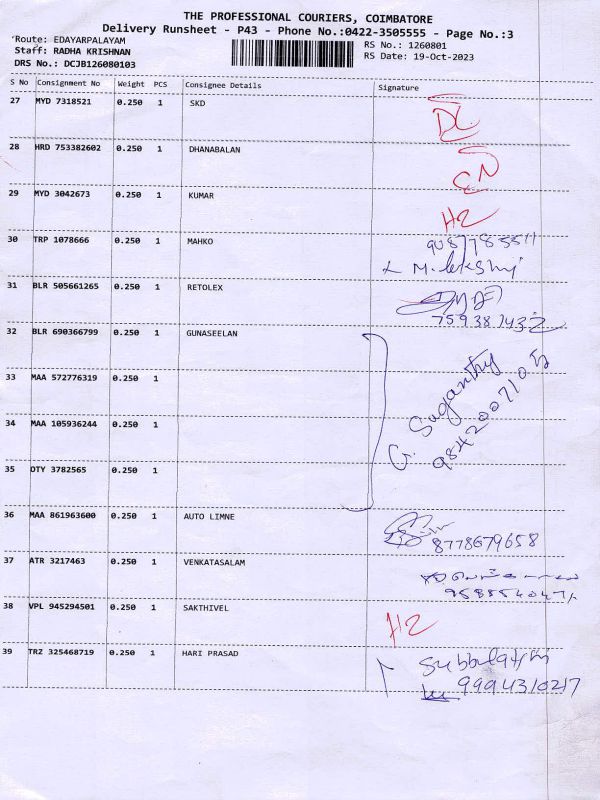 THE PROFESSIONAL COURIERS, COIMBATORE
Delivery Runsheet - P43 - Phone No.:0422-3505555 - Page No.:3
Route: EDAYARPALAYAM
Staff: RADHA KRISHNAN
DRS No.: DCJB126080103
RS No.: 1260801
RS Date: 19-Oct-2023
S No Consignment No Weight PCS Consignee Details Signature
27 MYD 7318521 0.250 1 SKD DL
28 HRD 753382602 0.250 1 DHANABALAN
29 MYD 3042673 0.250 1 KUMAR HZ
30 TRP 1078666 0.250 1 MAHKO
31 BLR 505661265 0.250 1 RETOLEX
32 BLR 690366799 0.250 1 GUNASEELAN
33 MAA 572776319 0.250 1
34 MAA 105936244 0.250 1
G. Suganthy
35 OTY 3782565 0.250 1
36 MAA 861963600 0.250 1 AUTO LIMNE
8778679658
37 ATR 3217463 0.250 1 VENKATASALAM
38 VPL 945294501 0.250 1 SAKTHIVEL HZ
39 TRZ 325468719 0.250 1 HARI PRASAD
9994310217